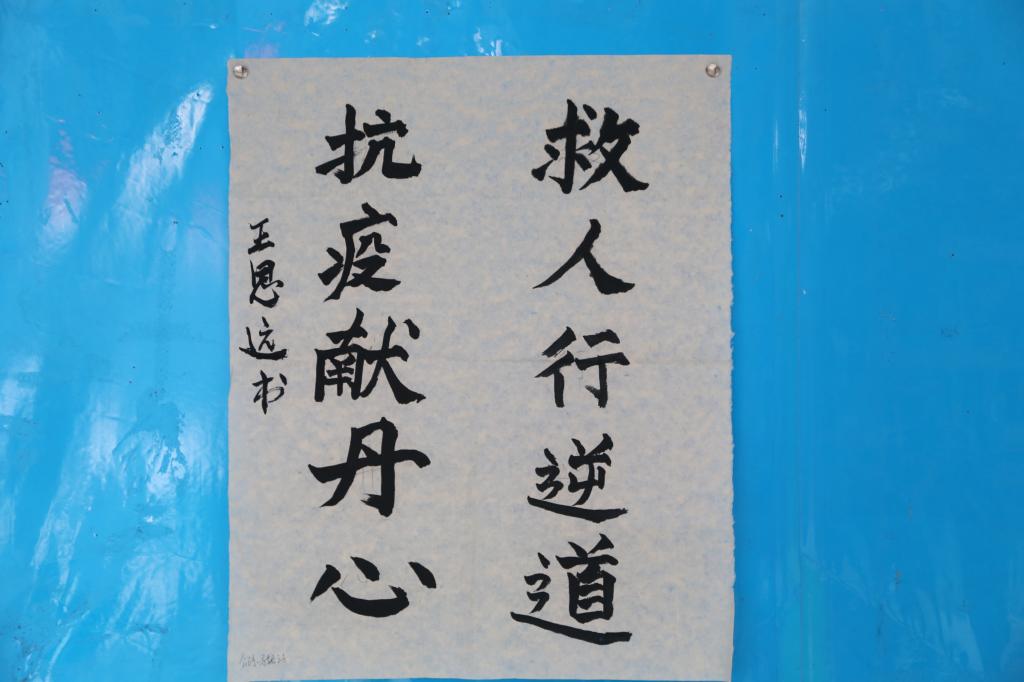 救人行逆道
抗疫献丹心
王恩远书